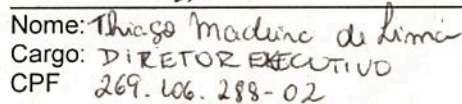 Nome: Thiago Madeira de Lima
Cargo: DIRETOR EXECUTIVO
CPF 269.606.288-02